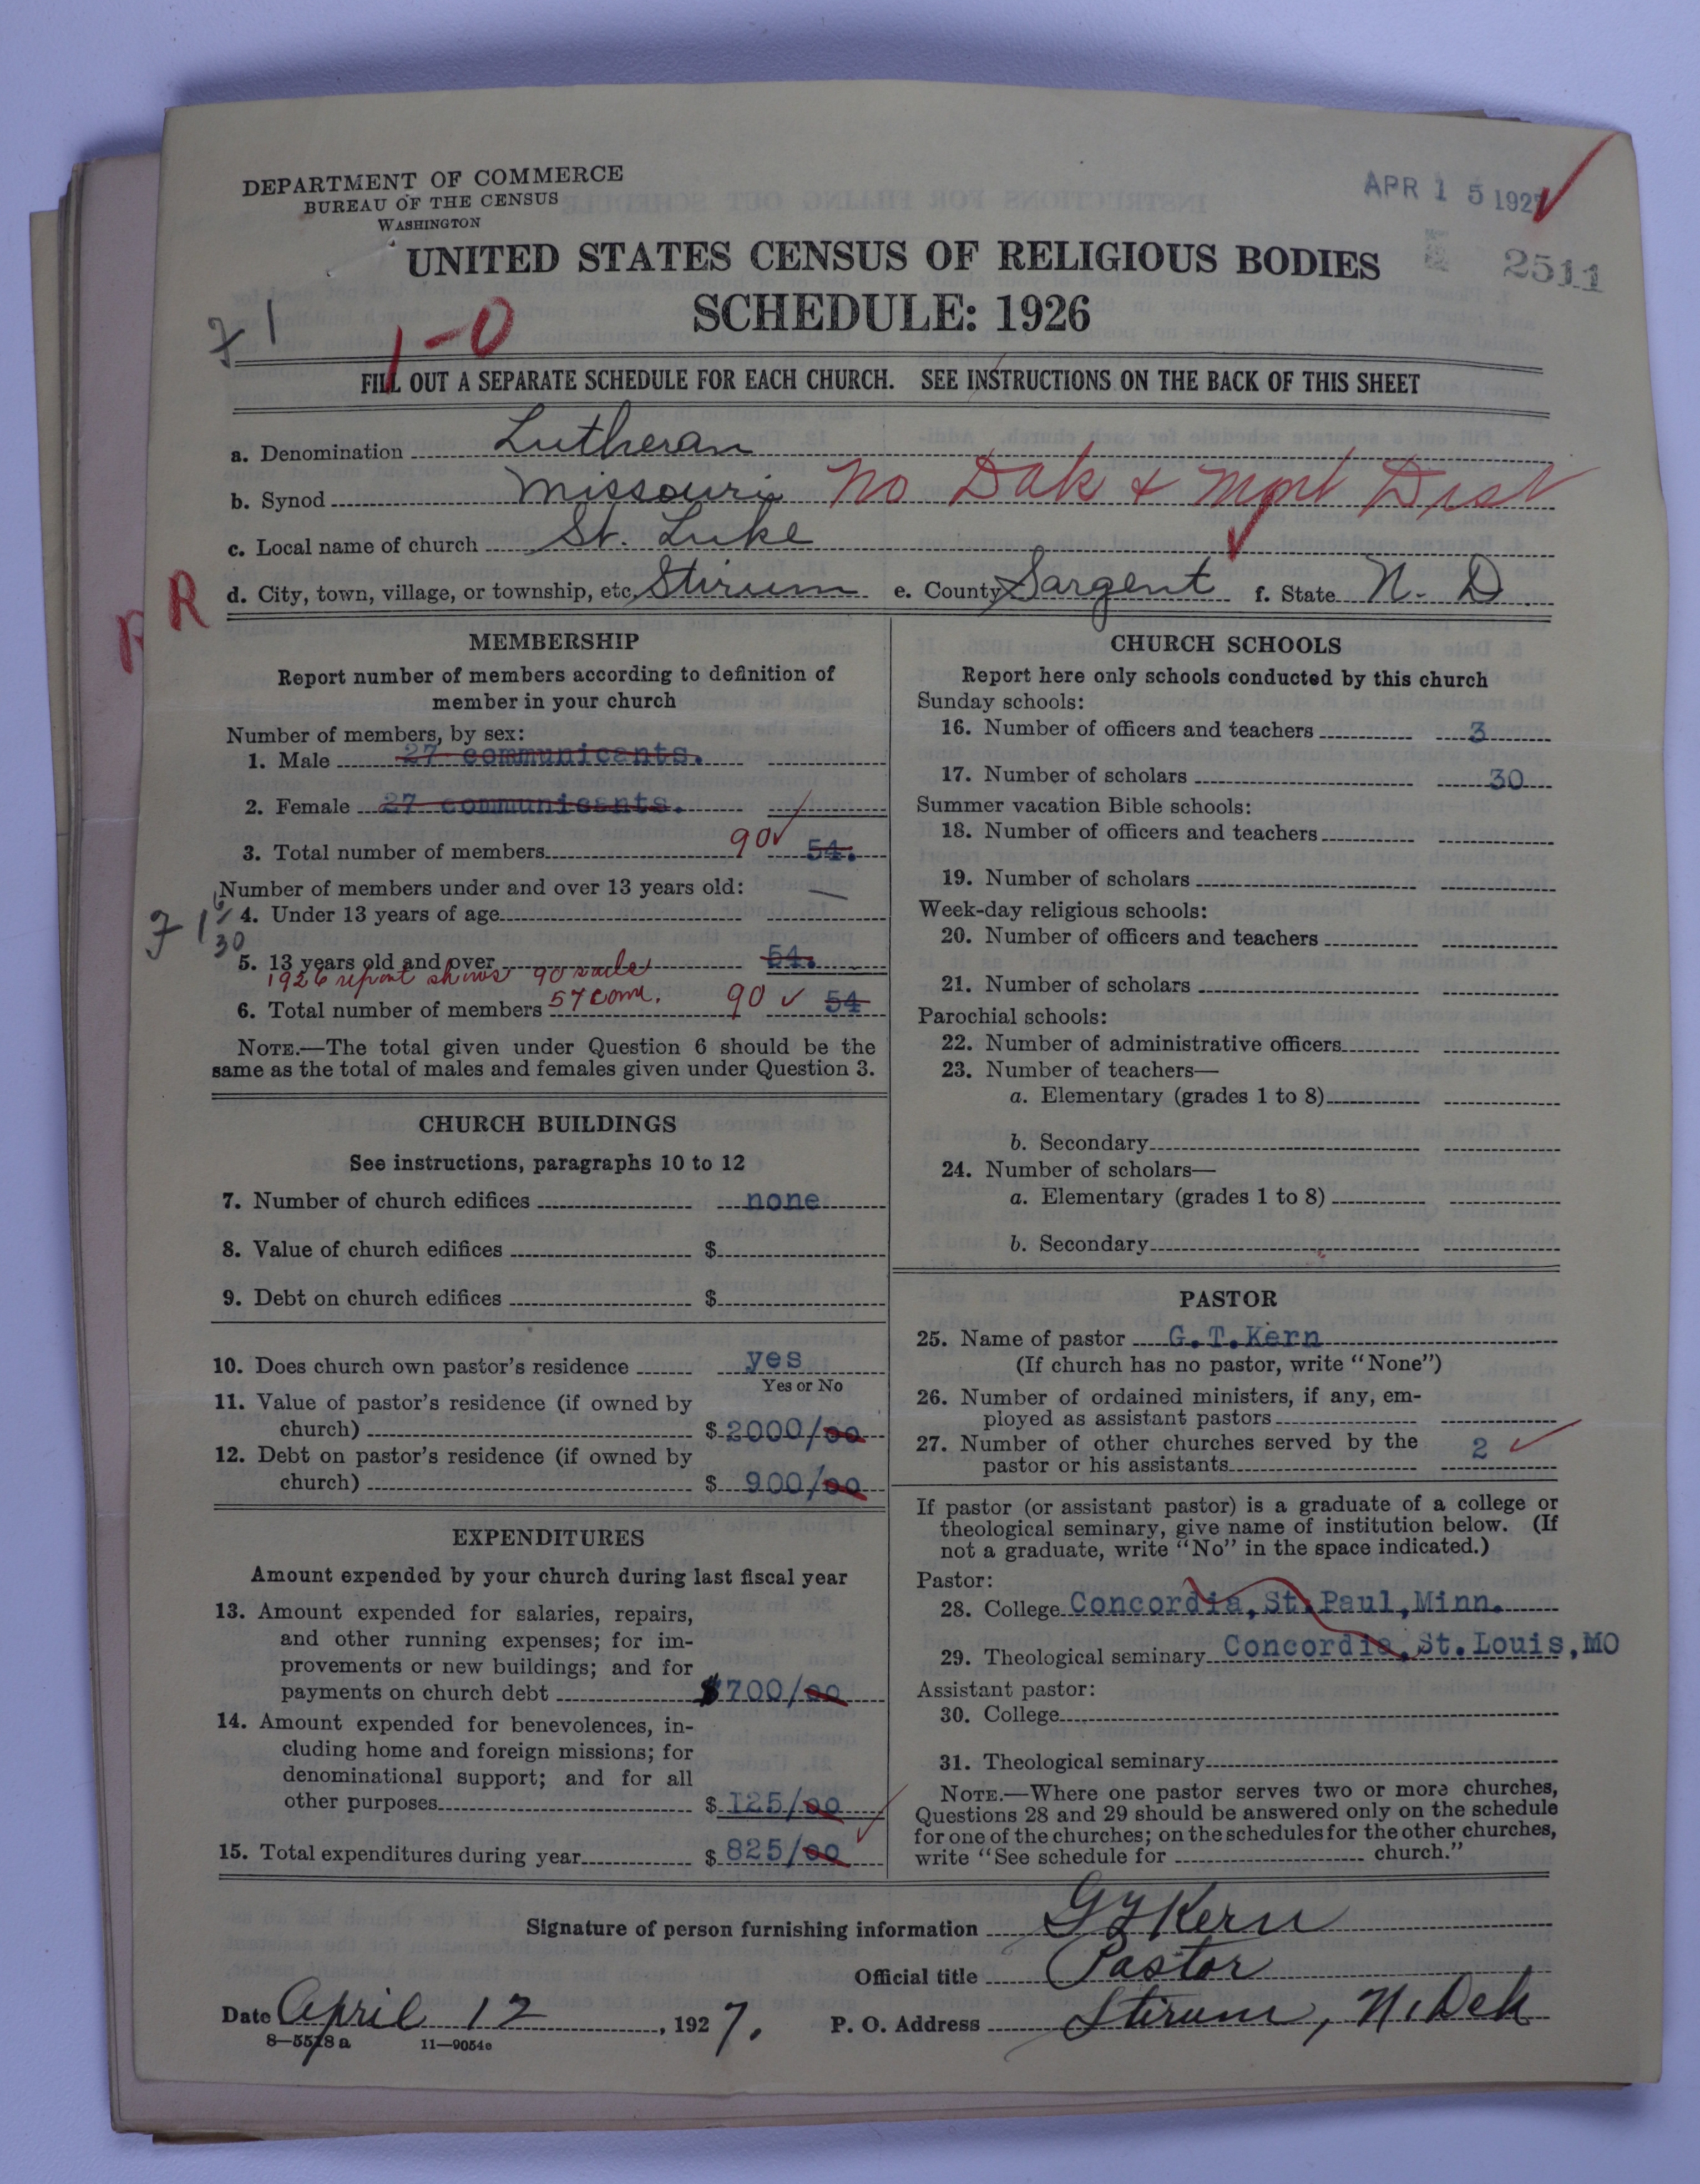 DEPARTMENT OF COMMERCE
BUREAU OF THE CENSUS
WASHINGTON
APR 15 1927
2511
UNITED STATES CENSUS OF RELIGIOUS BODIES
SCHEDULE: 1926
1-0
FILL OUT A SEPARATE SCHEDULE FOR EACH CHURCH. SEE INSTRUCTIONS ON THE BACK OF THIS SHEET
a. Denomination Lutheran
b. Synod Missouri No Dak & Mont Dist
c. Local name of church St. Luke
R d. City, town, village, or township, etc. Stirum e. County Sargent f. State N. D.
MEMBERSHIP
Report number of members according to definition of
member in your church
Number of members, by sex:
1. Male 27 communicants.
2. Female 27 communicants.
3. Total number of members 90 54.
Number of members under and over 13 years old: —
4. Under 13 years of age
30
5. 13 years old and over 54.
1926 report shows 90 souls
6. Total number of members 57 com. 90 54
NOTE.—The total given under Question 6 should be the
same as the total of males and females given under Question 3.
CHURCH BUILDINGS
See instructions, paragraphs 10 to 12
7. Number of church edifices none
8. Value of church edifices $
9. Debt on church edifices $
10. Does church own pastor's residence yes
Yes or No
11. Value of pastor's residence (if owned by
church) $ 2000/00
12. Debt on pastor's residence (if owned by
church) $ 900/00
EXPENDITURES
Amount expended by your church during last fiscal year
13. Amount expended for salaries, repairs,
and other running expenses; for im-
provements or new buildings; and for
payments on church debt $700/00
14. Amount expended for benevolences, in-
cluding home and foreign missions; for
denominational support; and for all
other purposes $ 125/00
15. Total expenditures during year $ 825/00
CHURCH SCHOOLS
Report here only schools conducted by this church
Sunday schools:
16. Number of officers and teachers 3
17. Number of scholars 30
Summer vacation Bible schools:
18. Number of officers and teachers
19. Number of scholars
Week-day religious schools:
20. Number of officers and teachers
21. Number of scholars
Parochial schools:
22. Number of administrative officers
23. Number of teachers—
a. Elementary (grades 1 to 8)
b. Secondary
24. Number of scholars—
a. Elementary (grades 1 to 8)
b. Secondary
PASTOR
25. Name of pastor G.T.Kern
(If church has no pastor, write "None")
26. Number of ordained ministers, if any, em-
ployed as assistant pastors
27. Number of other churches served by the
pastor or his assistants 2
If pastor (or assistant pastor) is a graduate of a college or
theological seminary, give name of institution below. (If
not a graduate, write "No" in the space indicated.)
Pastor:
28. College Concordia,St.Paul,Minn.
29. Theological seminary Concordia,St.Louis,MO
Assistant pastor:
30. College
31. Theological seminary
NOTE.—Where one pastor serves two or more churches,
Questions 28 and 29 should be answered only on the schedule
for one of the churches; on the schedules for the other churches,
write "See schedule for church."
Signature of person furnishing information G T Kern
Official title Pastor
Date April 12, 1927. P. O. Address Stirum, N. Dak
8—5518 a 11—9054e